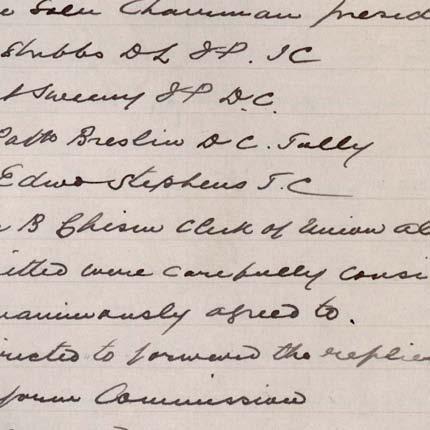 Chairman presid
Stubbs DL JP. JC
Sweeny JP D.C.
Patk Breslin D C. Tully
Edwd Stephens T.C
B Chism Clerk of Union al
itted were carefully consi
nanimously agreed to.
irected to forward the replie
form Commission